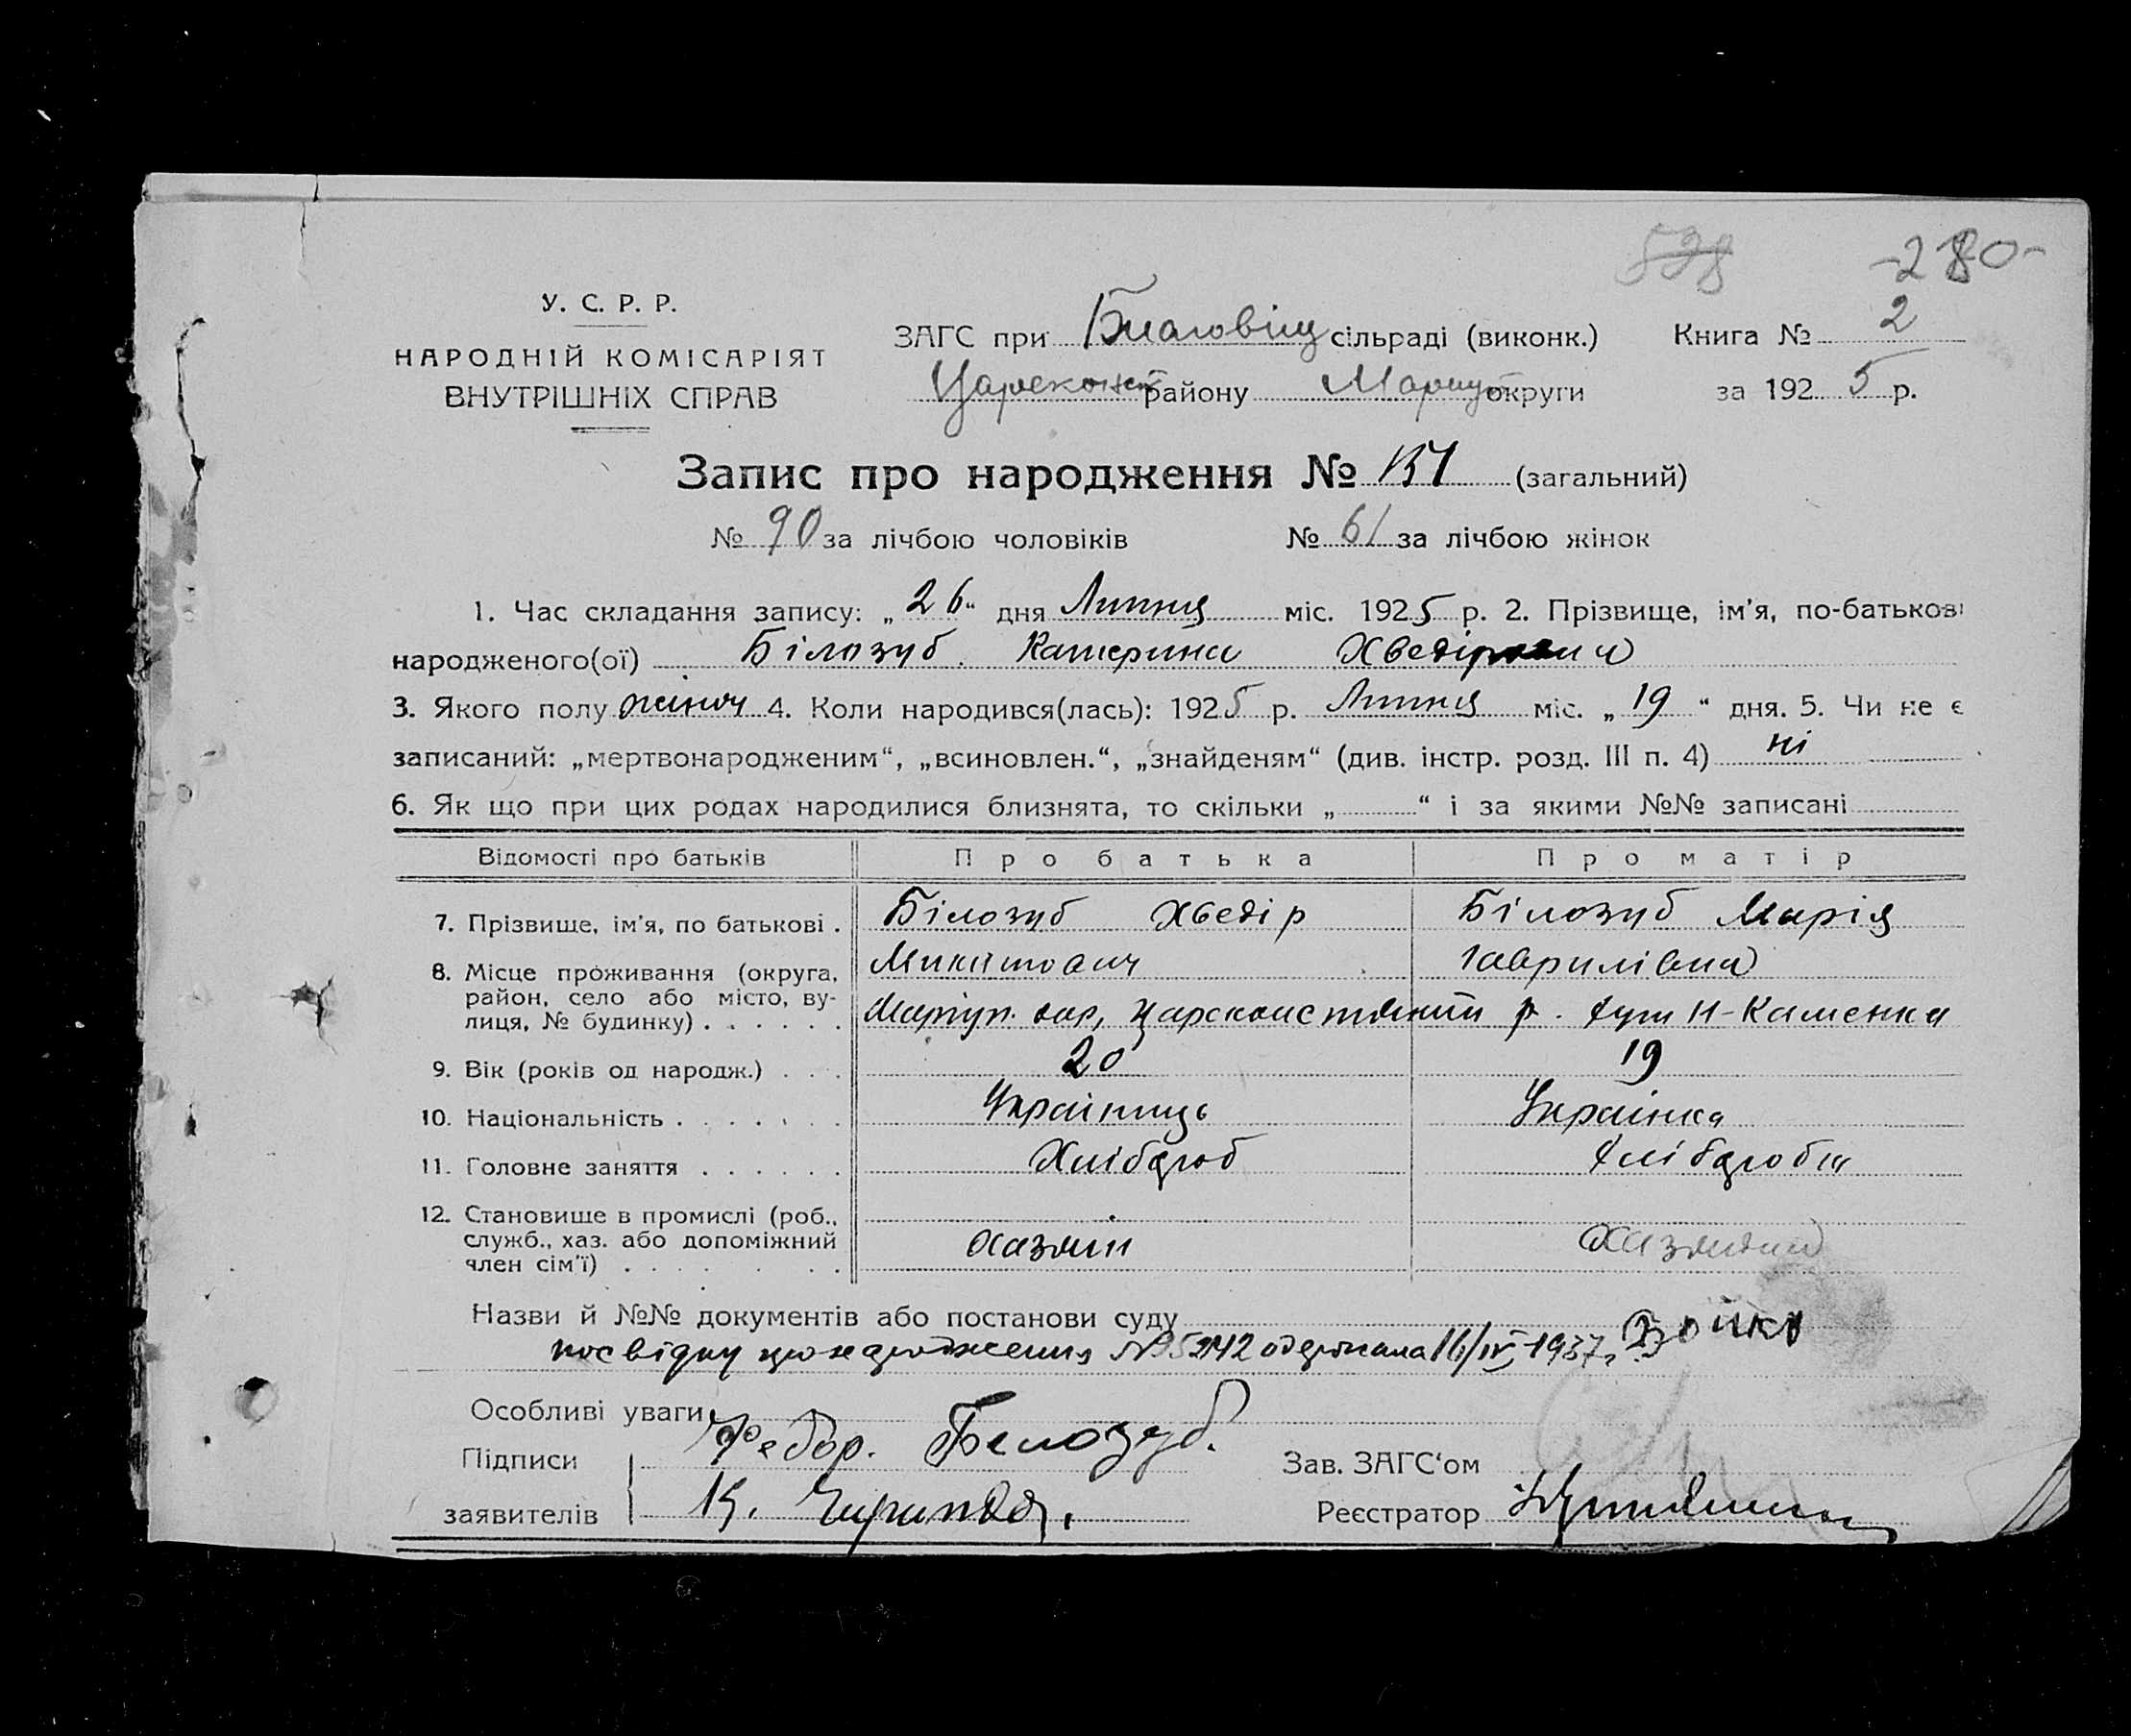 538 -280-
У. С. Р. Р.
НАРОДНІЙ КОМІСАРІЯТ
ВНУТРІШНІХ СПРАВ
ЗАГС при Благовіщ сільраді (виконк.) Книга № 2
Цареконст району Маріуп округи за 1925 р.
Запис про народження № 151 (загальний)
№ 90 за лічбою чоловіків № 61 за лічбою жінок
1. Час складання запису: „26“ дня Липня міс. 1925 р. 2. Прізвище, ім'я, по-батькові
народженого(ої) Білозуб Катерина Хведіровна
3. Якого полу жіноч 4. Коли народився(лась): 1925 р. Липня міс. „19“ дня. 5. Чи не є
записаний: „мертвонародженим“, „всиновлен.“, „знайденям“ (див. інстр. розд. III п. 4) ні
6. Як що при цих родах народилися близнята, то скільки „ “ і за якими №№ записані
Відомості про батьків Про батька Про матір
7. Прізвище, ім'я, по батькові . Білозуб Хведір Білозуб Марія
Микитович Гаврилівна
8. Місце проживання (округа,
район, село або місто, ву-
лиця, № будинку) . . . . . . Маріуп. окр, Царсконстянт р. хут Н-Каменка
9. Вік (років од народж.) . . . 20 19
10. Національність . . . . . . Українець Українка
11. Головне заняття . . . . . . Хлібороб Хліборобка
12. Становище в промислі (роб.,
служб., хаз. або допоміжний
член сім'ї) . . . . . . хазяїн Хазяйка
Назви й №№ документів або постанови суду
посвідку про народження № 5242 одержала 16/IV-1937р Бойко
Особливі уваги
Підписи Федор. Белозуб.
заявителів К.
Зав. ЗАГС'ом
Реєстратор